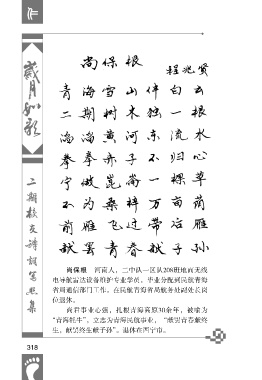 岁月如歌
二期校友诗词写照集
尚保根
程兆贤
青海雪山伴白云
二期树木独一根
滔滔黄河东流水
拳拳赤子不归心
宁做昆嵛一棵草
不为桑梓万亩荫
前雁飞过带后雁
献罢青春献子孙
尚保根 河南人，二中队一区队208班地面无线
电导航雷达设备维护专业学员，毕业分配到民航青海
省局通信部门工作，在民航青海省局航务处副处长岗
位退休。
尚君事业心强，扎根青海高原30余年，被喻为
“青海牦牛”。立志为青海民航事业，“献罢青春献终
生，献罢终生献子孙”。退休在西宁市。
318